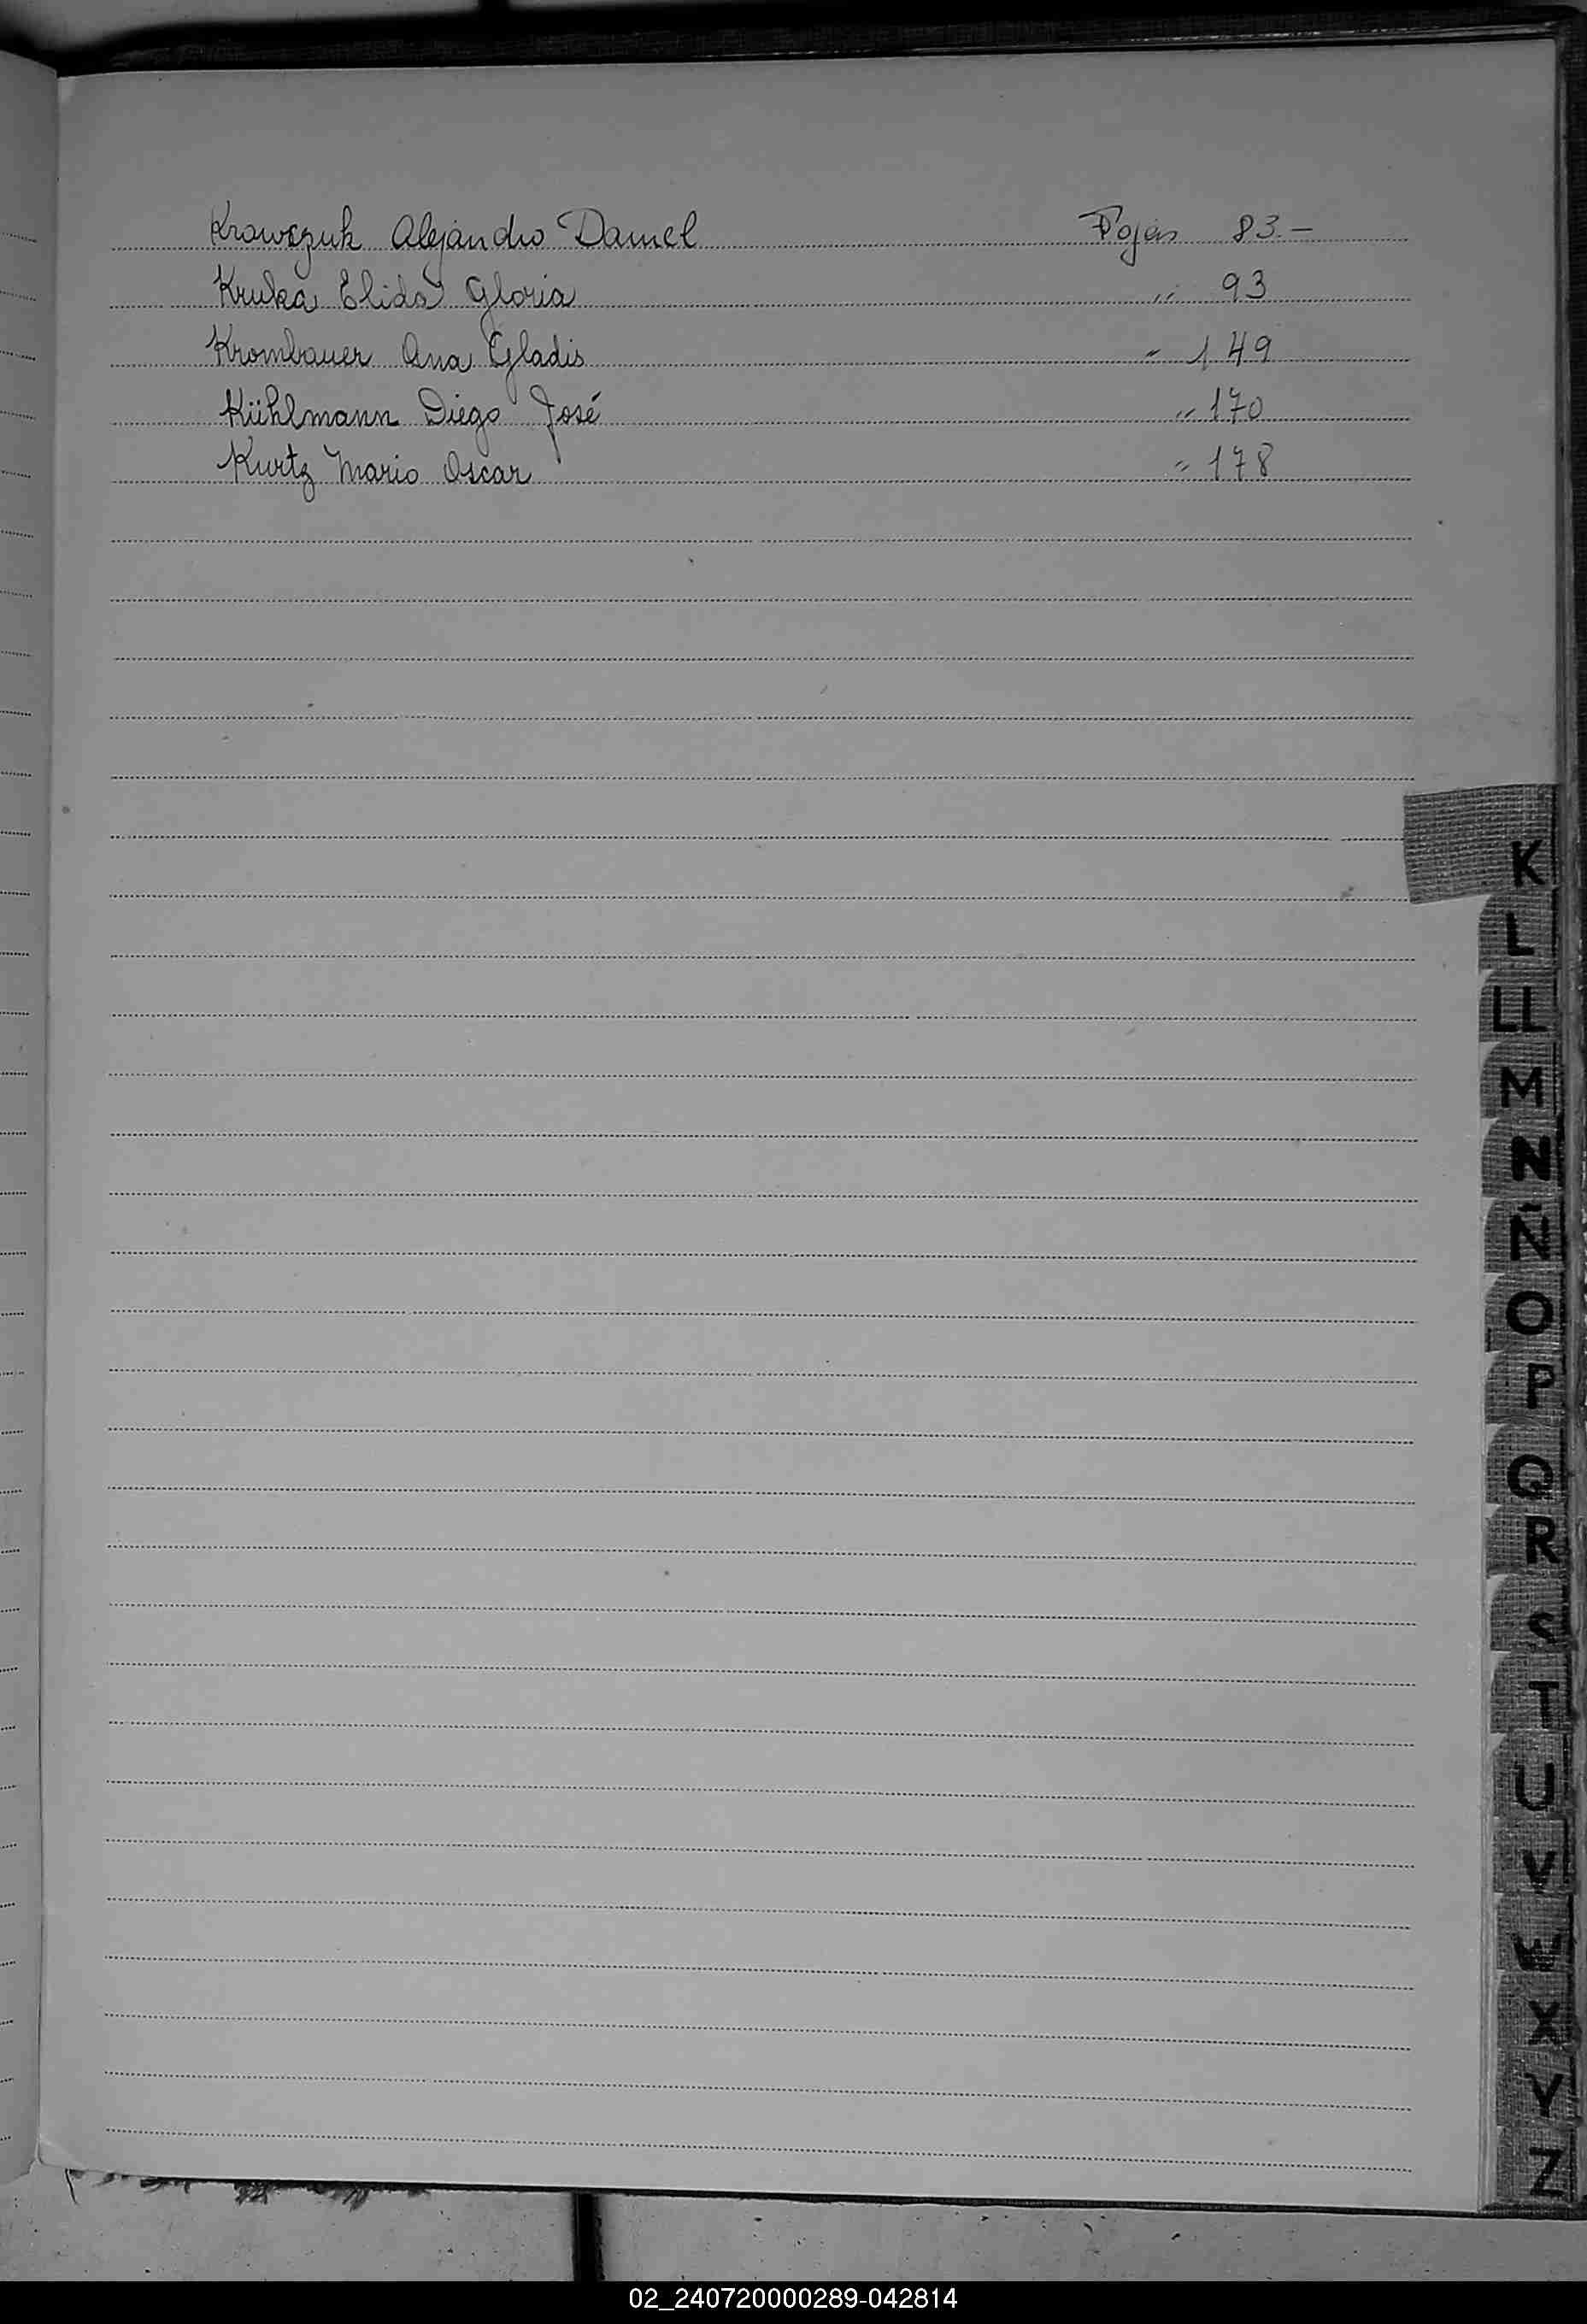 Krawczuk Alejandro Daniel Fojas 83.-
Kruka Elida Gloria " 93
Krombauer Ana Gladis " 149
Kühlmann Diego José " 170
Kurtz Mario Oscar " 178
K
L
LL
M
N
Ñ
O
P
Q
R
S
T
U
V
X
Y
Z
02_240720000289-042814